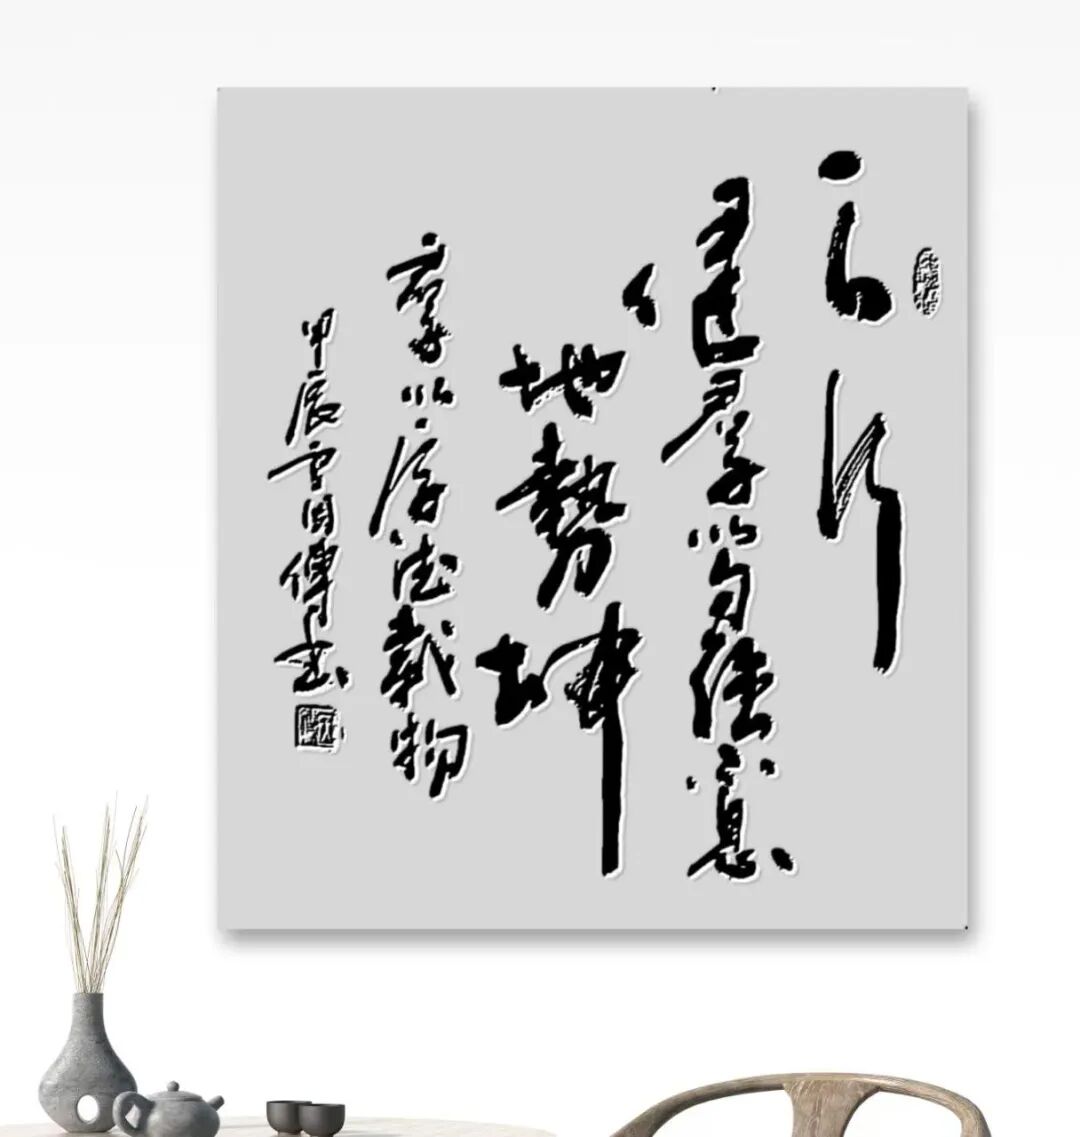 天行
健君子以自强不息
地勢坤
君子以厚德載物
甲辰